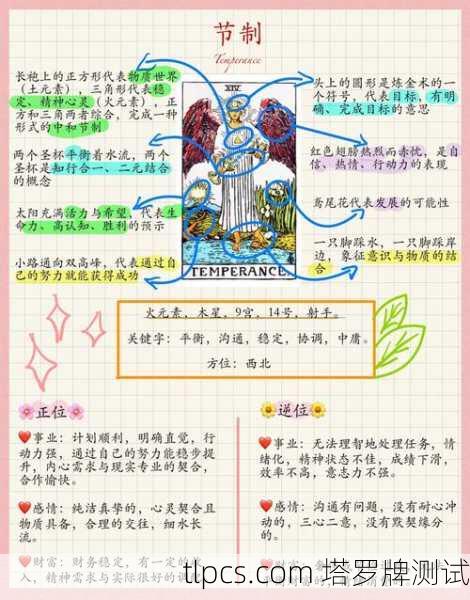 节制
Temperance
长袍上的正方形代表物质世界
（土元素），三角形代表稳
定、精神心灵（火元素），正
方和三角两者综合，完成一种
形式的中和节制
两个圣杯平衡着水流，两个
圣杯是知行合一、二元结合
的概念
太阳充满活力与希望，代表生
命力、高认知、胜利的预示
小路通向双高峰，代表通过自
己的努力就能获得成功
XIV
TEMPERANCE
头上的圆形是炼金术的一
个符号，代表目标，有明
确、完成目标的意思
红色翅膀热烈而赤忱，是自
信、热情、行动力的表现
鸢尾花代表发展的可能性
一只脚踩水，一只脚踩岸
边，象征意识与物质的结
合
火元素，木星，9宫，14号，射手。
关键字：平衡，沟通，稳定，协调，中庸。
方位：西北
正位
事业：计划顺利，明确直觉，行
动力强，通过自己的努力能稳步提
升，内心需求与现实专业的契合，
合作愉快。
感情：纯洁真挚的，心灵契合且
物质具备，合理的交往，细水长
流。
财富：财务稳定，有一定的
入，精神需求与实际很好的
逆位
事业：无法理智地处理任务，情
绪化，精神状态不佳，成绩下滑，
效率不高，意志力不强。
感情：沟通有问题，没有耐心冲
动的，三心二意，没有默契缘分
的。
tlpcs.com 塔罗牌测试